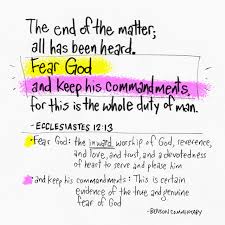 The end of the matter;
all has been heard.
Fear God
and keep his commandments,
for this is the whole duty of man.
- ECCLESIASTES 12:13
• Fear God: the inward worship of God, reverence,
and love, and trust, and a devotedness
of heart to serve and please him
• and keep his commandments: This is certain
evidence of the true and genuine
fear of God
- BENSON COMMENTARY